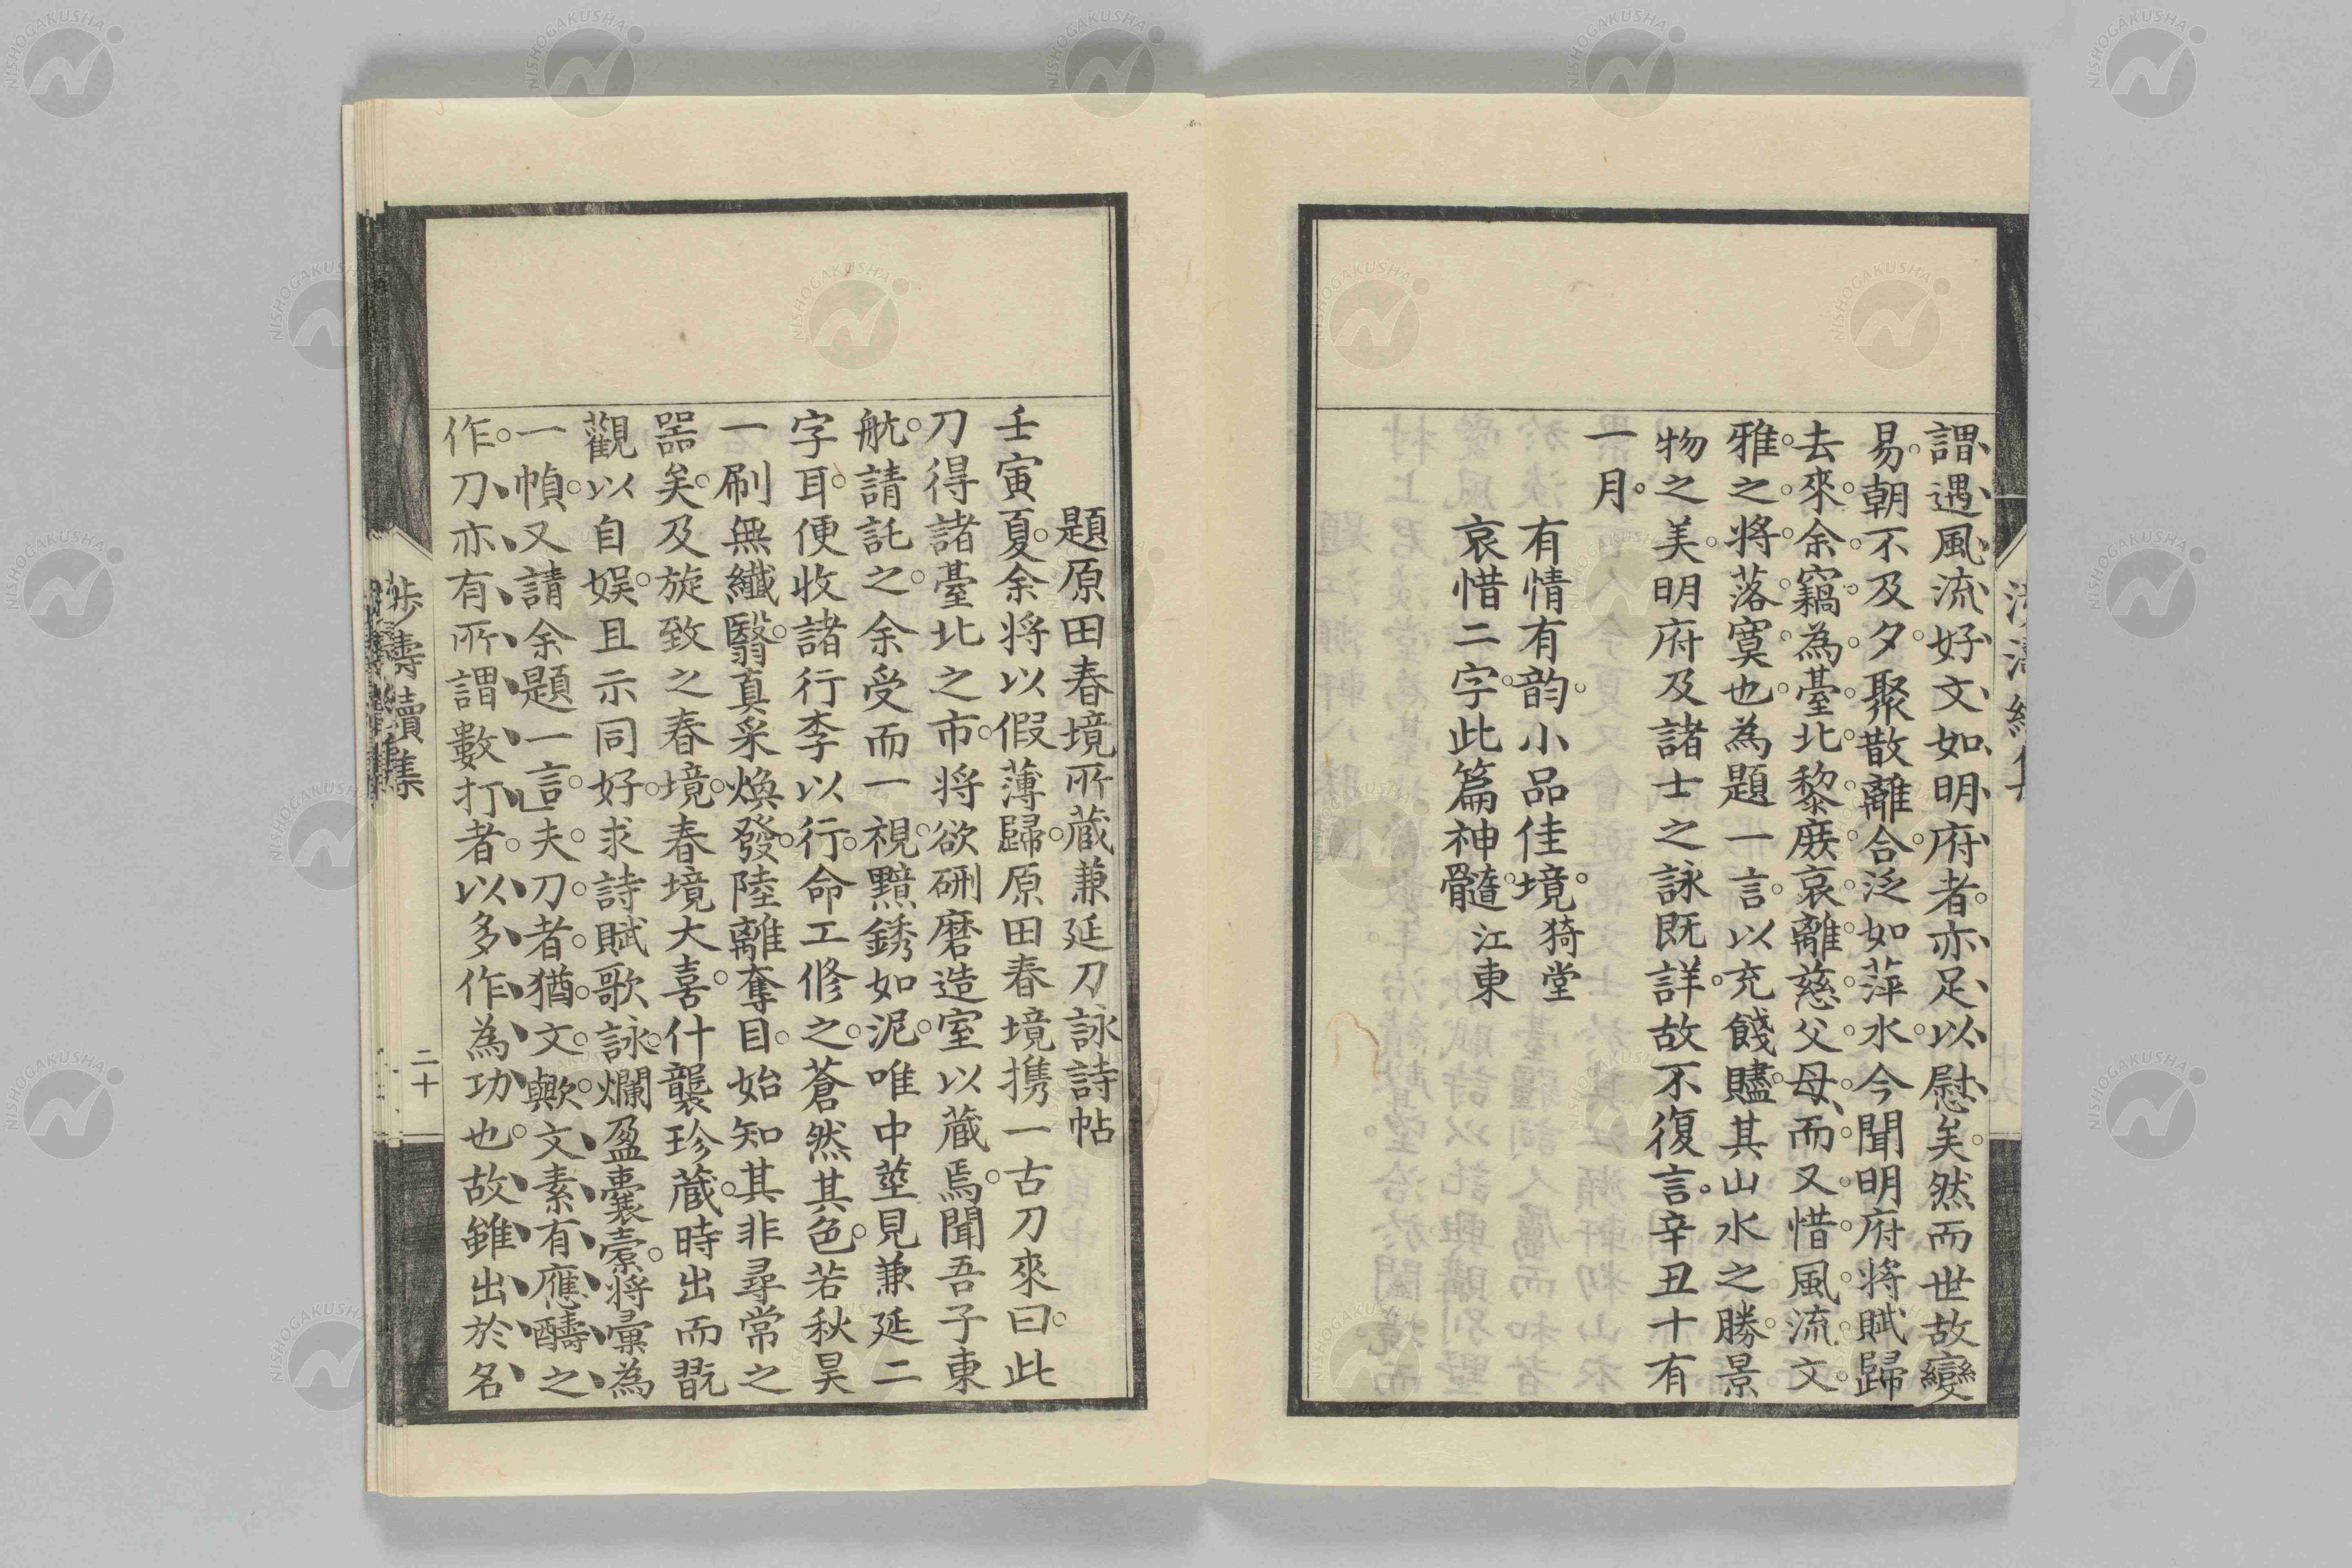 謂遇風流好文如明府者亦足以慰矣然而世故變
易朝不及夕聚散離合泛如萍水今聞明府將賦歸
去來余竊為臺北黎庶哀離慈父母而又惜風流文
雅之將落寞也為題一言以充餞贐其山水之勝景
物之美明府及諸士之詠既詳故不復言辛丑十有
一月
有情有韵小品佳境 猗堂
哀惜二字此篇神髓 江東
題原田春境所蔵兼延刀詠詩帖
壬寅夏余將以假薄歸原田春境携一古刀來曰此
刀得諸臺北之市將欲硎磨造室以蔵焉聞吾子東
航請託之余受而一視黯銹如泥唯中莖見兼延二
字耳便收諸行李以行命工修之蒼然其色若秋昊
一刷無纖翳真采煥發陸離奪目始知其非尋常之
噐矣及旋致之春境春境大喜什襲珍蔵時出而翫
觀以自娱且示同好求詩賦歌詠爛盈囊橐將彙為
一幀又請余題一言夫刀者猶文歟文素有應醻之
作刀亦有所謂數打者以多作為功也故雖出於名
涉濤續集
二十
NISHOGAKUSHA